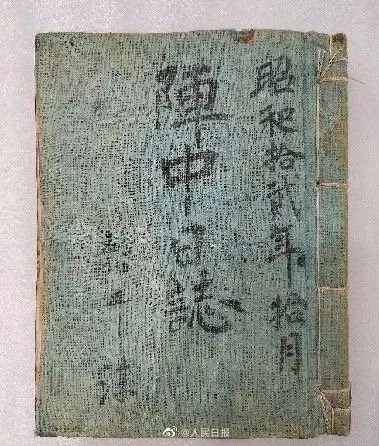 昭和拾貳年拾月
陣中日誌
@人民日报